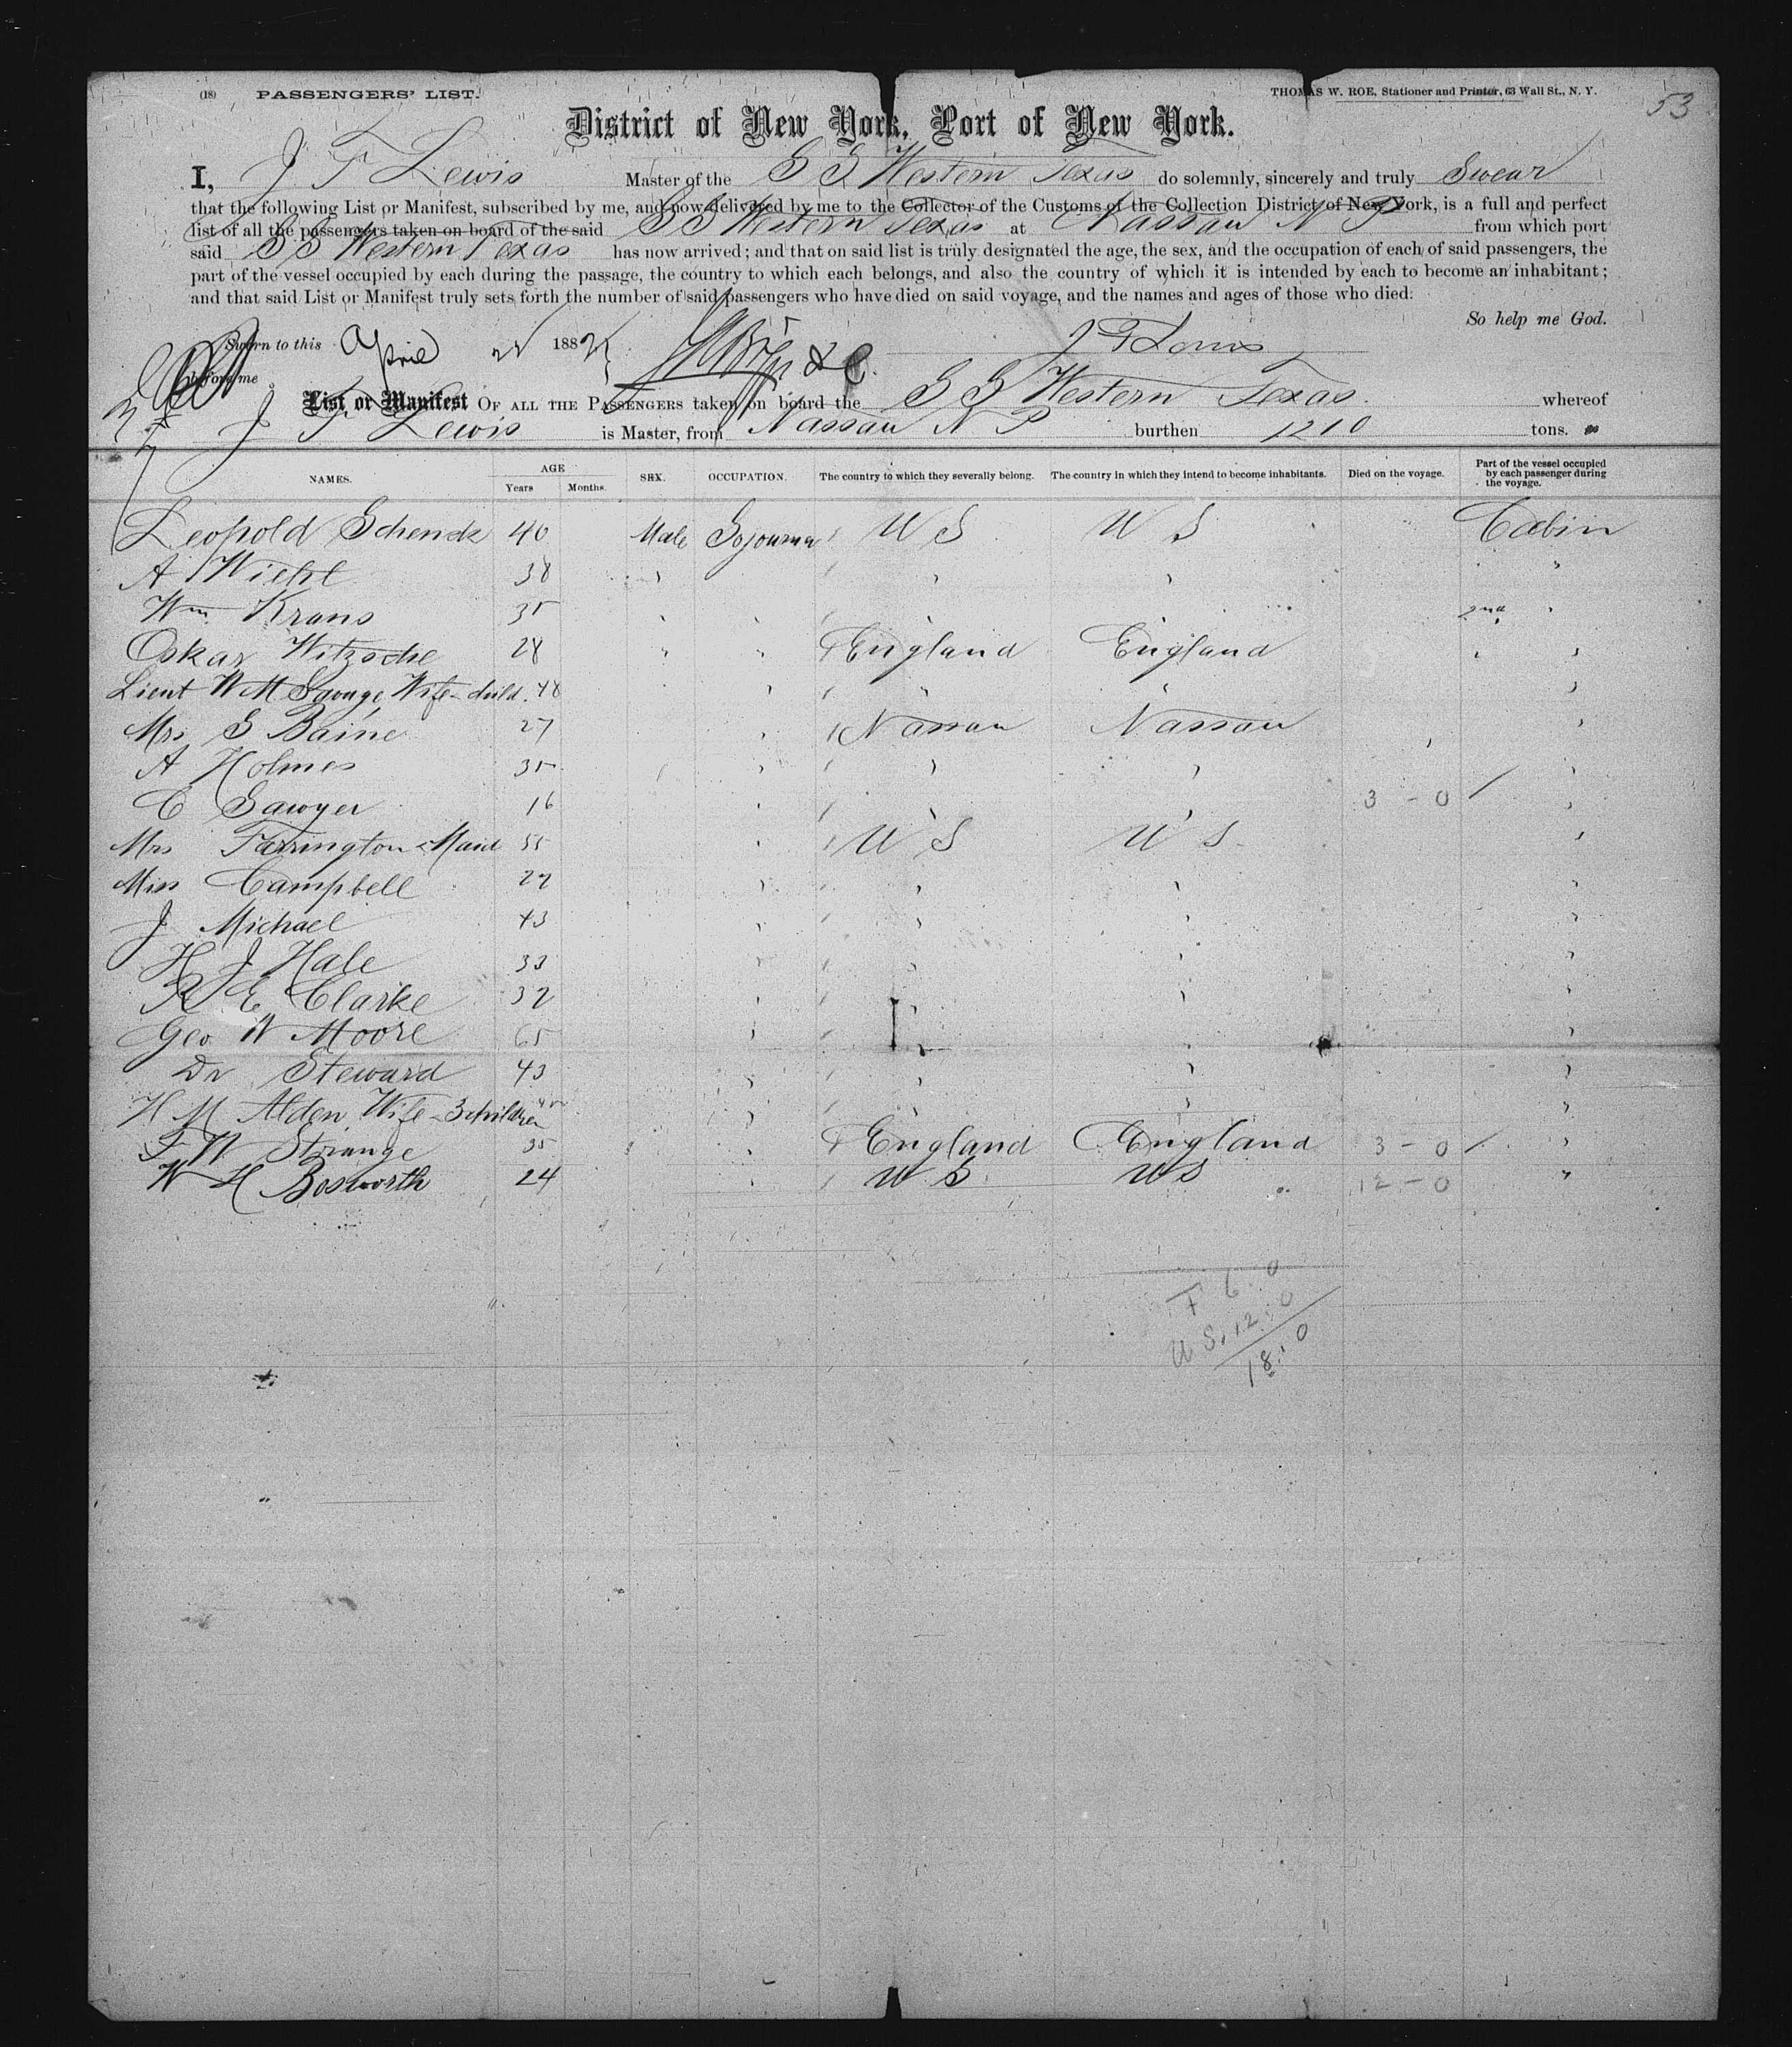 (18) PASSENGERS' LIST. THOMAS W. ROE, Stationer and Printer, 63 Wall St., N. Y. 53
District of New York, Port of New York.
I, J F Lewis Master of the S S Western Texas do solemnly, sincerely and truly Swear
that the following List or Manifest, subscribed by me, and now delivered by me to the Collector of the Customs of the Collection District of New York, is a full and perfect
list of all the passengers taken on board of the said S S Western Texas at Nassau N P from which port
said S S Western Texas has now arrived; and that on said list is truly designated the age, the sex, and the occupation of each of said passengers, the
part of the vessel occupied by each during the passage, the country to which each belongs, and also the country of which it is intended by each to become an inhabitant;
and that said List or Manifest truly sets forth the number of said passengers who have died on said voyage, and the names and ages of those who died:
So help me God.
Sworn to this April 188 J F Lewis
before me
List or Manifest OF ALL THE PASSENGERS taken on board the S S Western Texas whereof
J F Lewis is Master, from Nassau N P burthen 1210 tons.
NAMES. AGE Years Months. SEX. OCCUPATION. The country to which they severally belong. The country in which they intend to become inhabitants. Died on the voyage. Part of the vessel occupied by each passenger during the voyage.
Leopold Schenck 40 Male Sojourner U S U S Cabin
A Wiehl 38 " " " "
Wm Krans 35 " " " " 2nd "
Oskar Witzsche 28 " " England England " "
Lieut W M Savage, Wife - child. 48 " " " "
Mrs S Baine 27 " Nassau Nassau "
A Holmes 35 " " " "
C Sawyer 16 " " " 3 - 0 / "
Mrs Farrington & Maid 55 " U S U S "
Miss Campbell 22 " " " "
J Michael 43 " " " "
H J Hale 33 " " " "
R E Clarke 32 " " " "
Geo W Moore 65 " " " "
Dr Steward 43 " " " "
H M Alden, Wife - 3 children " " " "
F W Strange 35 " England England 3 - 0 / "
W H Bosworth 24 " U S U S 12 - 0 "
F 6 0
U S. 12 : 0
18 : 0